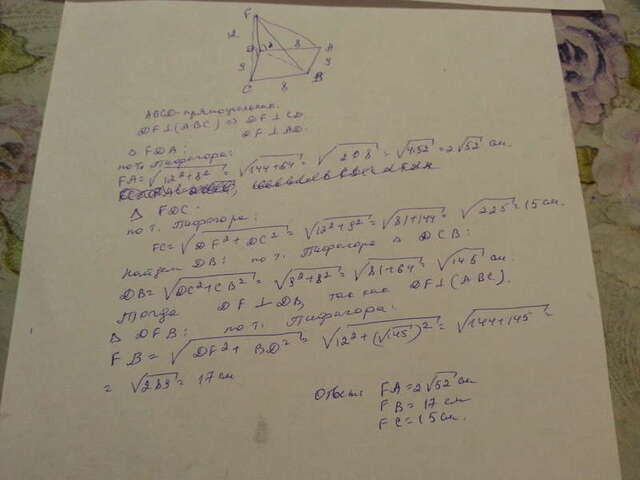 F
12
D
8
A
9
9
B
C
8
ABCD - прямоугольник.
DF⊥(ABC) => DF⊥CD
DF⊥AD.
△ FDA:
по т. Пифагора:
FA=√12²+8² = √144+64 = √208 = √4·52 = 2√52 см.
△ FDC:
по т. Пифагора:
FC=√DF²+DC² = √12²+9² = √81+144 = √225 = 15 см.
Найдем DB: по т. Пифагора △ DCB:
DB=√DC²+CB² = √9²+8² = √81+64 = √145 см.
Тогда DF⊥DB, так как DF⊥(ABC).
△ DFB: по т. Пифагора:
FB = √DF²+BD² = √12²+(√145)² = √144+145 =
= √289 = 17 см
Ответ: FA=2√52 см
FB=17 см
FC=15 см.